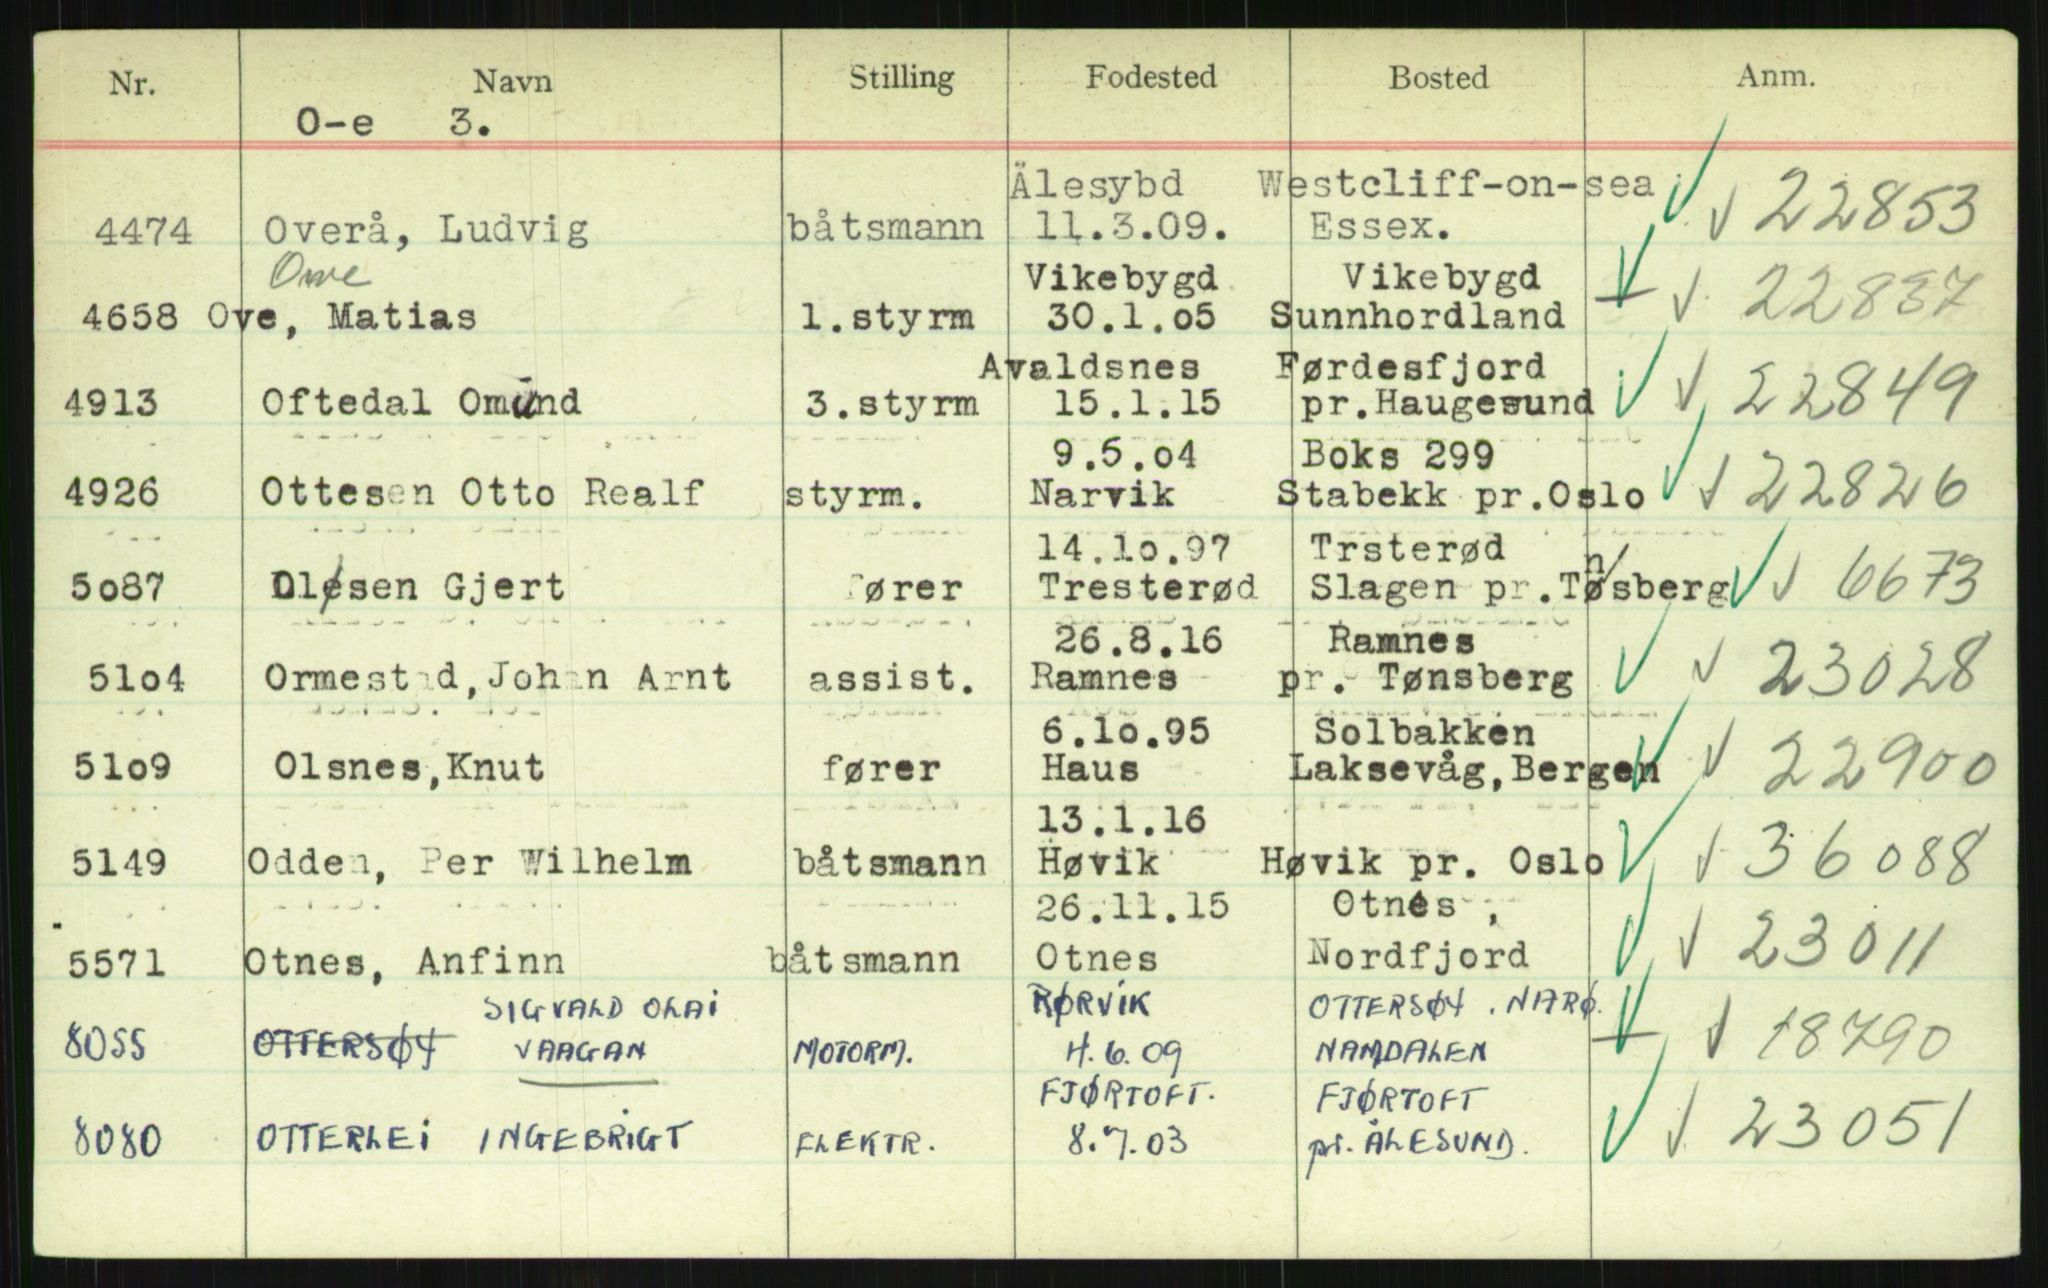 Nr. Navn Stilling Fodested Bosted Anm.
O-e 3.
Älesybd Westcliff-on-sea
4474 Overå, Ludvig båtsmann 11.3.09. Essex. √ 22853
Owe Vikebygd Vikebygd
4658 Ove, Matias 1.styrm 30.1.o5 Sunnhordland √ 22837
Avaldsnes Førdesfjord
4913 Oftedal Omund 3.styrm 15.1.15 pr.Haugesund √ 22849
9.5.o4 Boks 299
4926 Ottesen Otto Realf styrm. Narvik Stabekk pr.Oslo √ 22826
14.1o.97 Trsterød
5o87 Olesen Gjert fører Tresterød Slagen pr.Tønsberg √ 6673
26.8.16 Ramnes
51o4 Ormestad,Johan Arnt assist. Ramnes pr. Tønsberg √ 23028
6.1o.95 Solbakken
51o9 Olsnes,Knut fører Haus Laksevåg,Bergen √ 22900
13.1.16
5149 Odden, Per Wilhelm båtsmann Høvik Høvik pr. Oslo √ 36088
26.11.15 Otnes ,
5571 Otnes, Anfinn båtsmann Otnes Nordfjord √ 23011
SIGVALD OLAI RØRVIK OTTERSØY . NARØ.
8055 OTTERSØY VAAGAN MOTORM. 4.6.09 NAMDALEN √ 18790
FJØRTOFT. FJØRTOFT
8080 OTTERLEI INGEBRIGT ELEKTR. 8.7.03 pr. ÅLESUND. √ 23051